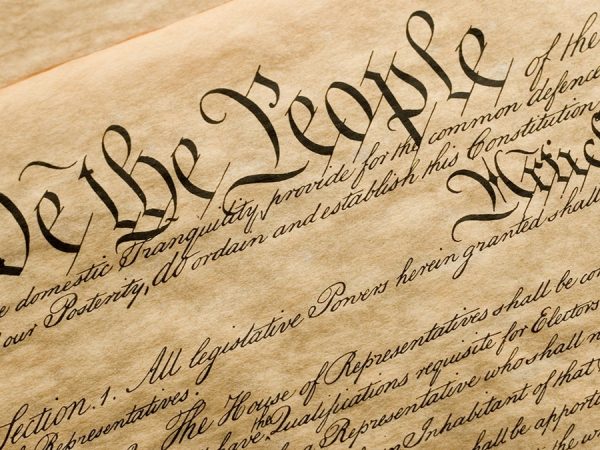 We the People of the
domestic Tranquility, provide for the common defence
our Posterity, do ordain and establish this Constitution
Artic
Section. 1. All legislative Powers herein granted shall
Representatives.
The House of Representatives shall be com
have the Qualifications requisite for Electors
a Representative who shall n
Inhabitant of that
shall be apporti